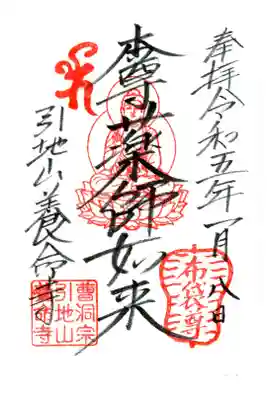 奉拝 令和五年一月八日
本尊薬師如来
引地山養命寺
布袋尊
曹洞宗
引地山
養命寺